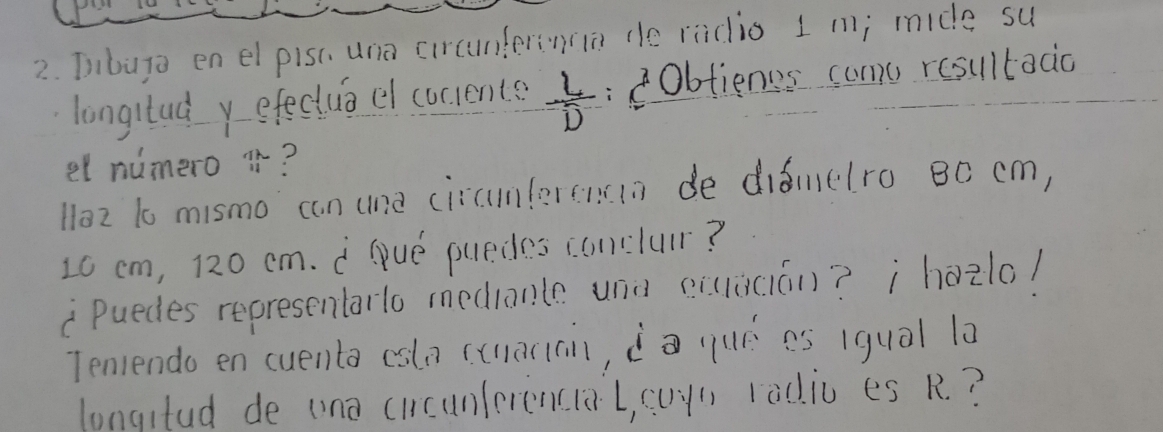 2. Dibuja en el piso una circunferencia de radio 1 m; mide su
longitud y efectúa el cociente L/D: ¿Obtienes como resultado
el número π?
Haz lo mismo con una circunferencia de diámetro 80 cm,
10 cm, 120 cm. ¿Qué puedes concluir?
¿Puedes representarlo mediante una ecuación? ¡hazlo!
Teniendo en cuenta esta ecuación, ¿a qué es igual la
longitud de una circunferencia L, cuyo radio es R.?